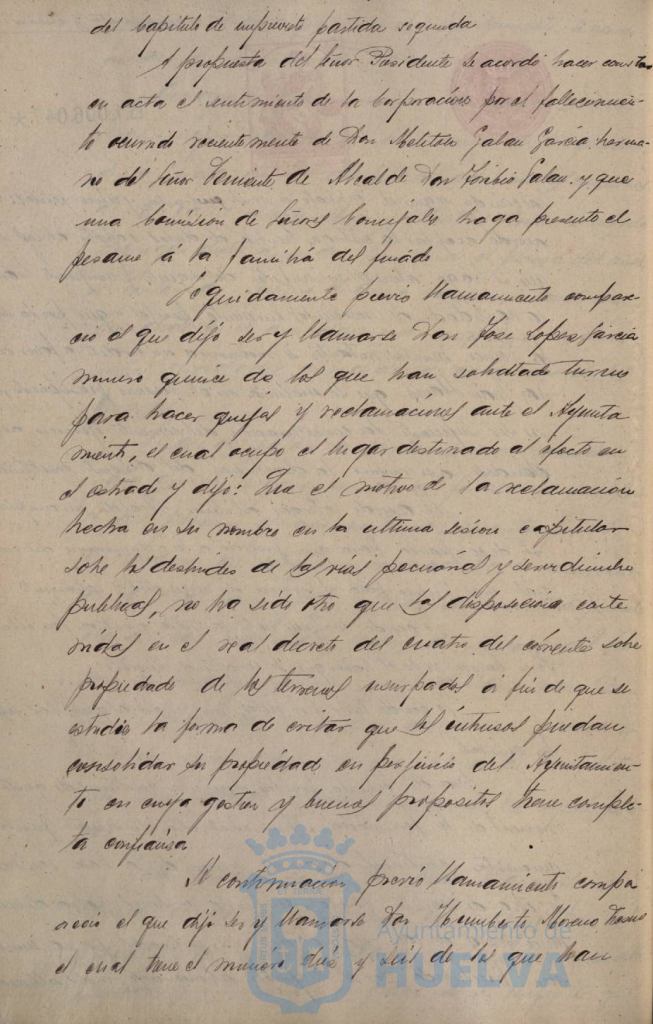 del Capitulo de imprevisto partida segunda
A propuesta del Señor Presidente se acordó hacer constar
en acta el sentimiento de la Corporación por el fallecimien-
to ocurrido recientemente de Don Galan García, herma-
no del Señor Teniente de Alcalde Don Toribio Galan. y que
una Comisión de Señores Concejales haga presente el
pesame á la familia del finado
Seguidamente previo llamamiento compare-
ció el que dijo ser y llamarse Don Jose Lopez Garcia
numero quince de los que han solicitado turno
para hacer quejas y reclamaciones ante el Ayunta
miento, el cual ocupó el lugar destinado al efecto en
el estrado y dijo: Que el motivo de la reclamación
hecha en su nombre en la ultima sesion capitular
sobre los deslindes de las vias pecuarias y servidumbre
publicas, no ha sido otro que las disposiciones conte
nidas en el real decreto del cuatro del corriente sobre
propiedad de los terrenos usurpados á fin de que se
estudie la forma de evitar que los intrusos puedan
consolidar su propiedad en perjuicio del Ayuntamien-
to en cuya gestion y buenos propositos tiene comple-
ta confianza
A continuación previo llamamiento compa
reció el que dijo ser y llamarse Don Humberto Moreno
el cual tiene el numero diez y seis de los que han
Ayuntamiento de
HUELVA